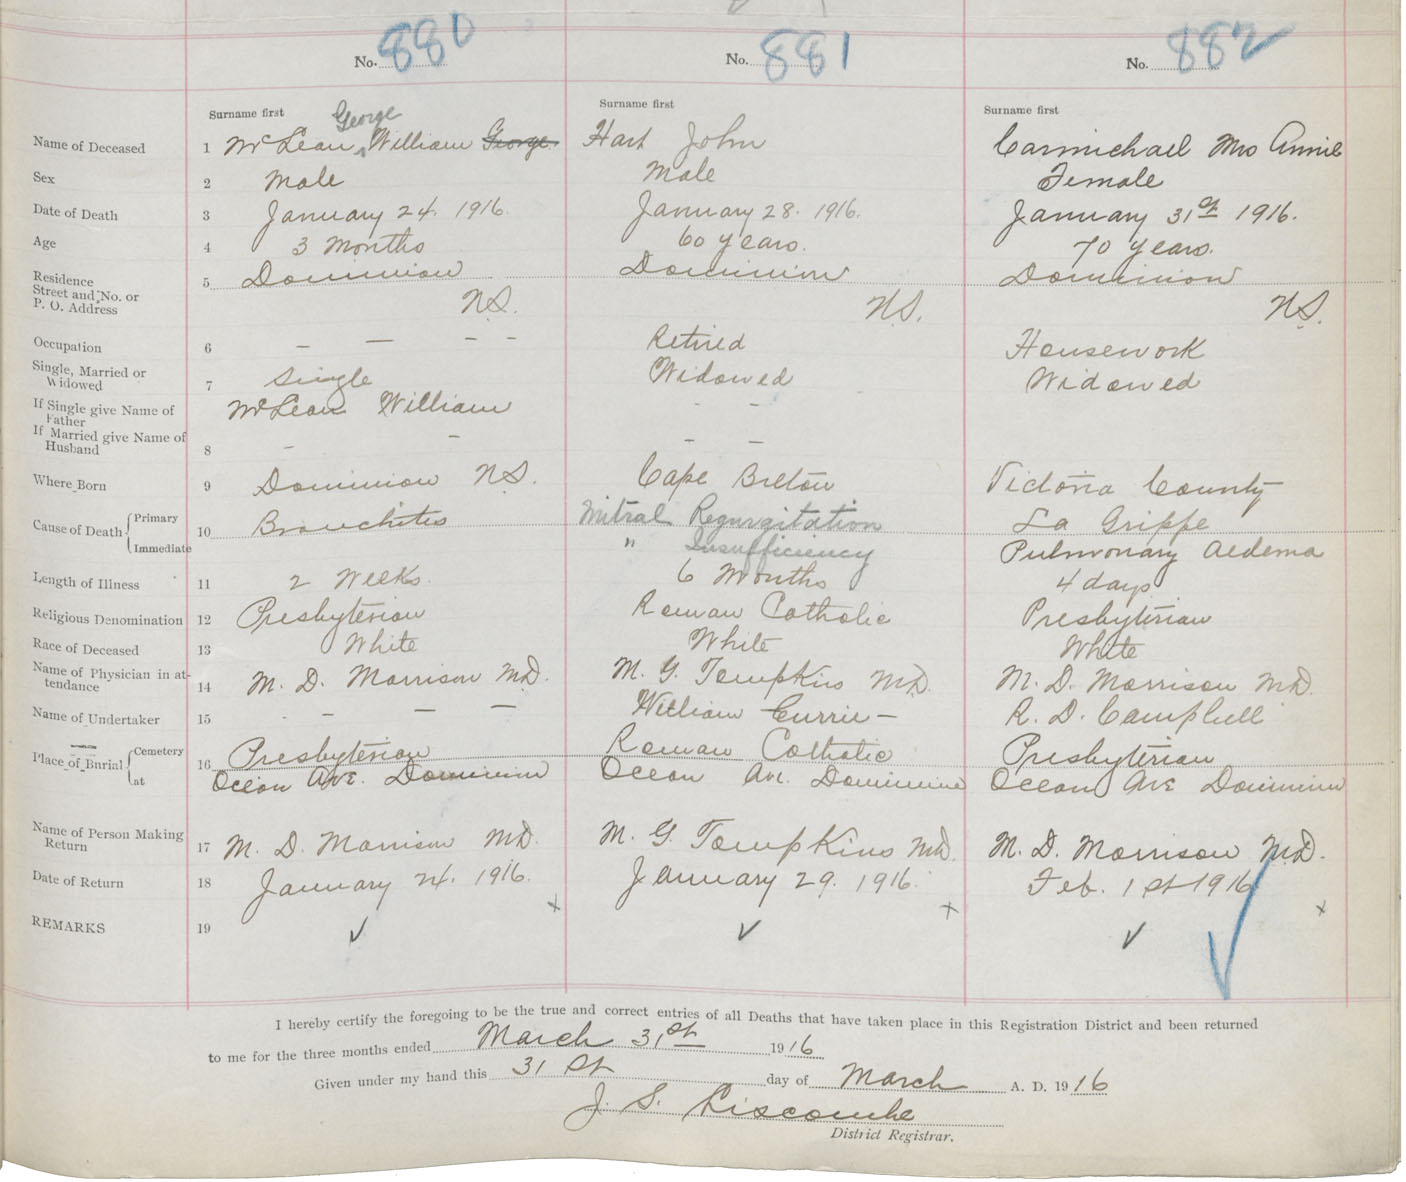 No. 880 No. 881 No. 882
Surname first Surname first Surname first
George
Name of Deceased 1 McLean William George Hart John Carmichael Mrs Annie
Sex 2 Male Male Female
Date of Death 3 January 24. 1916. January 28. 1916. January 31st 1916.
Age 4 3 Months 60 years. 70 years.
Residence Street and No. or P. O. Address 5 Dominion Dominion Dominion
N.S. N.S. N.S.
Occupation 6 – — – – Retired Housework
Single, Married or Widowed 7 Single Widowed Widowed
If Single give Name of Father McLean William - -
If Married give Name of Husband 8 – – – –
Where Born 9 Dominion N.S. Cape Breton Victoria County
Cause of Death { Primary 10 Bronchitis Mitral Regurgitation La Grippe
Immediate " Insufficiency Pulmonary Aedema
Length of Illness 11 2 Weeks. 6 Months 4 days
Religious Denomination 12 Presbyterian Roman Catholic Presbyterian
Race of Deceased 13 White White White
Name of Physician in attendance 14 M. D. Morrison M.D. M. G. Tompkins M.D. M. D. Morrison M.D.
Name of Undertaker 15 - – — — William Currie – R. D. Campbell
Place of Burial { Cemetery 16 Presbyterian Roman Catholic Presbyterian
at Ocean Ave. Dominion Ocean Av. Dominion Ocean Ave Dominion
Name of Person Making Return 17 M. D. Morrison M.D. M. G. Tompkins M.D. M. D. Morrison M.D.
Date of Return 18 January 24. 1916. January 29. 1916. Feb. 1st 1916
x x x
REMARKS 19 ✓ ✓ ✓ ✓
I hereby certify the foregoing to be the true and correct entries of all Deaths that have taken place in this Registration District and been returned
to me for the three months ended March 31st 1916
Given under my hand this 31st day of March A. D. 1916
J. S. Liscombe
District Registrar.